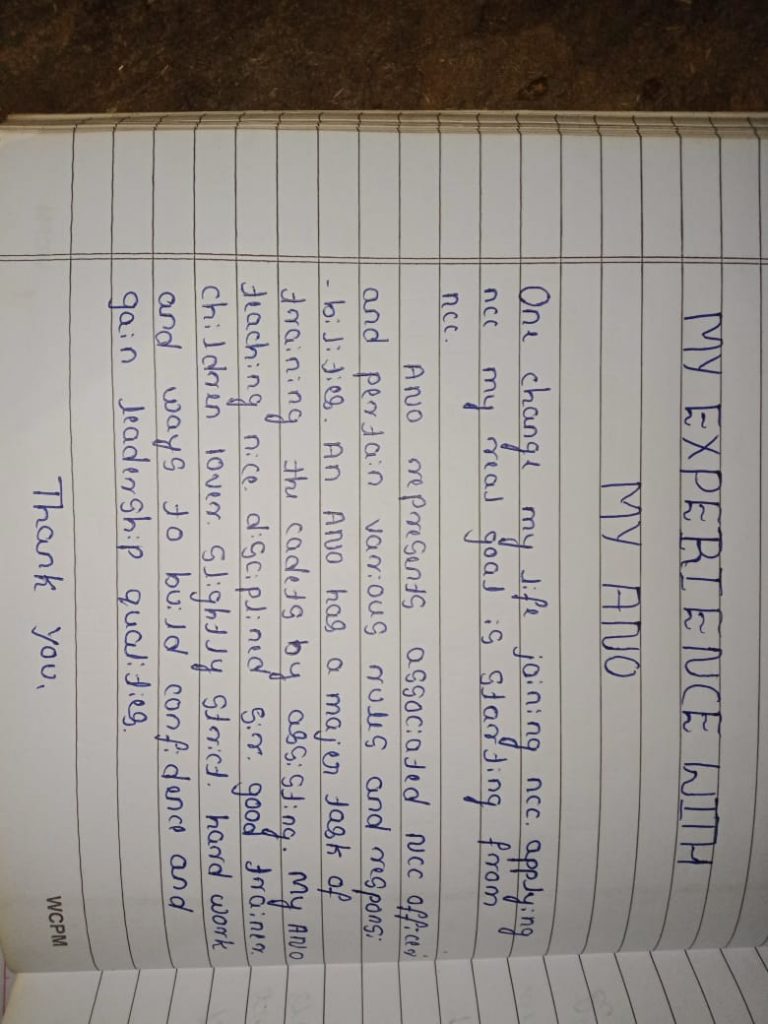 MY EXPERIENCE WITH
MY ANO
One change my life joining ncc. applying
ncc my real goal is starting from
ncc.
ANO represents associated NCC officer
and pertain various rules and responsi
-bilities. An ANO has a major task of
training the cadets by assisting. My ANO
teaching nice. disciplined sir. good trainer.
children lover. slightly strict. hard work
and ways to build confidence and
gain leadership qualities.
Thank you,
WCPM